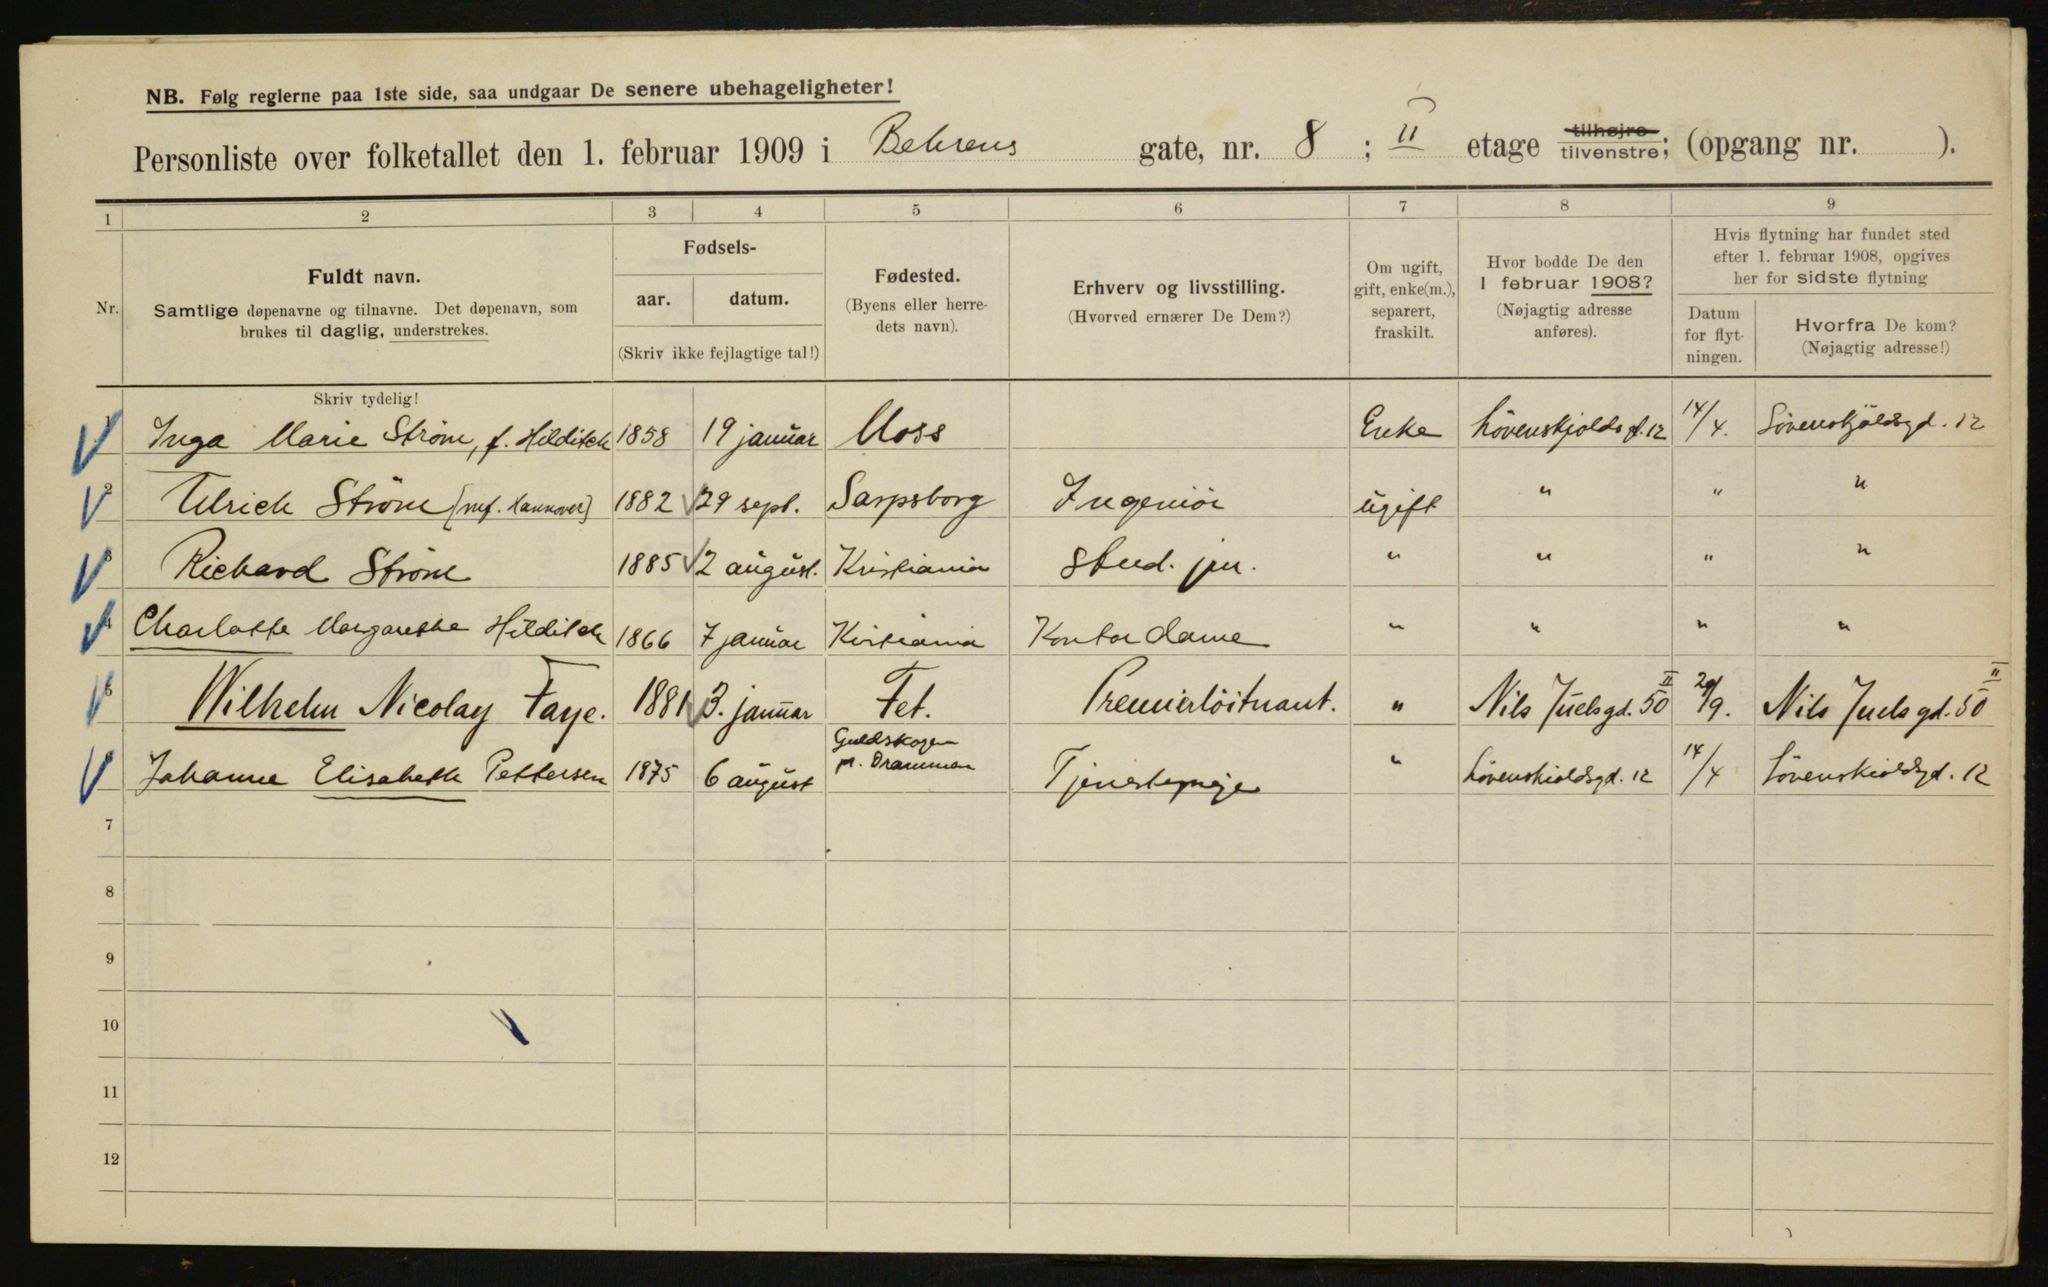 NB. Følg reglerne paa 1ste side, saa undgaar De senere ubehageligheter!
Personliste over folketallet den 1. februar 1909 i Behrens gate, nr. 8 ; II etage tilhøjre tilvenstre; (opgang nr. ).
1 2 3 4 5 6 7 8 9
Nr.
Fuldt navn.
Samtlige døpenavne og tilnavne. Det døpenavn, som
brukes til daglig, understrekes.
Fødsels-
aar. datum.
(Skriv ikke fejlagtige tal!)
Fødested.
(Byens eller herre-
dets navn).
Erhverv og livsstilling.
(Hvorved ernærer De Dem?)
Om ugift,
gift, enke(m.),
separert,
fraskilt.
Hvor bodde De den
1 februar 1908?
(Nøjagtig adresse
anføres).
Hvis flytning har fundet sted
efter 1. februar 1908, opgives
her for sidste flytning
Datum
for flyt-
ningen.
Hvorfra De kom?
(Nøjagtig adresse!)
Skriv tydelig!
1 Inga Marie Strøm, f. Hilditch 1858 19 januar Moss Enke Løvenskjolds gd. 12 14/4. Løvenskjoldsgd. 12
2 Ulrich Strøm [ Hannover] 1882 29 sept. Sarpsborg Ingeniör ugift " " "
3 Richard Strøm 1885 2 august. Kristiania Stud. jur. " " " "
4 Charlotte Margarethe Hilditch 1866 7 januar Kristiania Kontordame " " " "
5 Wilhelm Nicolay Faye. 1881 3. januar Fet. Premierløitnant. " Nils Juelsgd. 50 II 29/9. Nils Juels gd. 50 II
6 Johanne Elisabeth Pettersen 1875 6 august Guldskogen pr. Drammen Tjenestepige " Løvenskioldsgd. 12 14/4 Løvenskioldsgd. 12
7
8
9
10
11
12